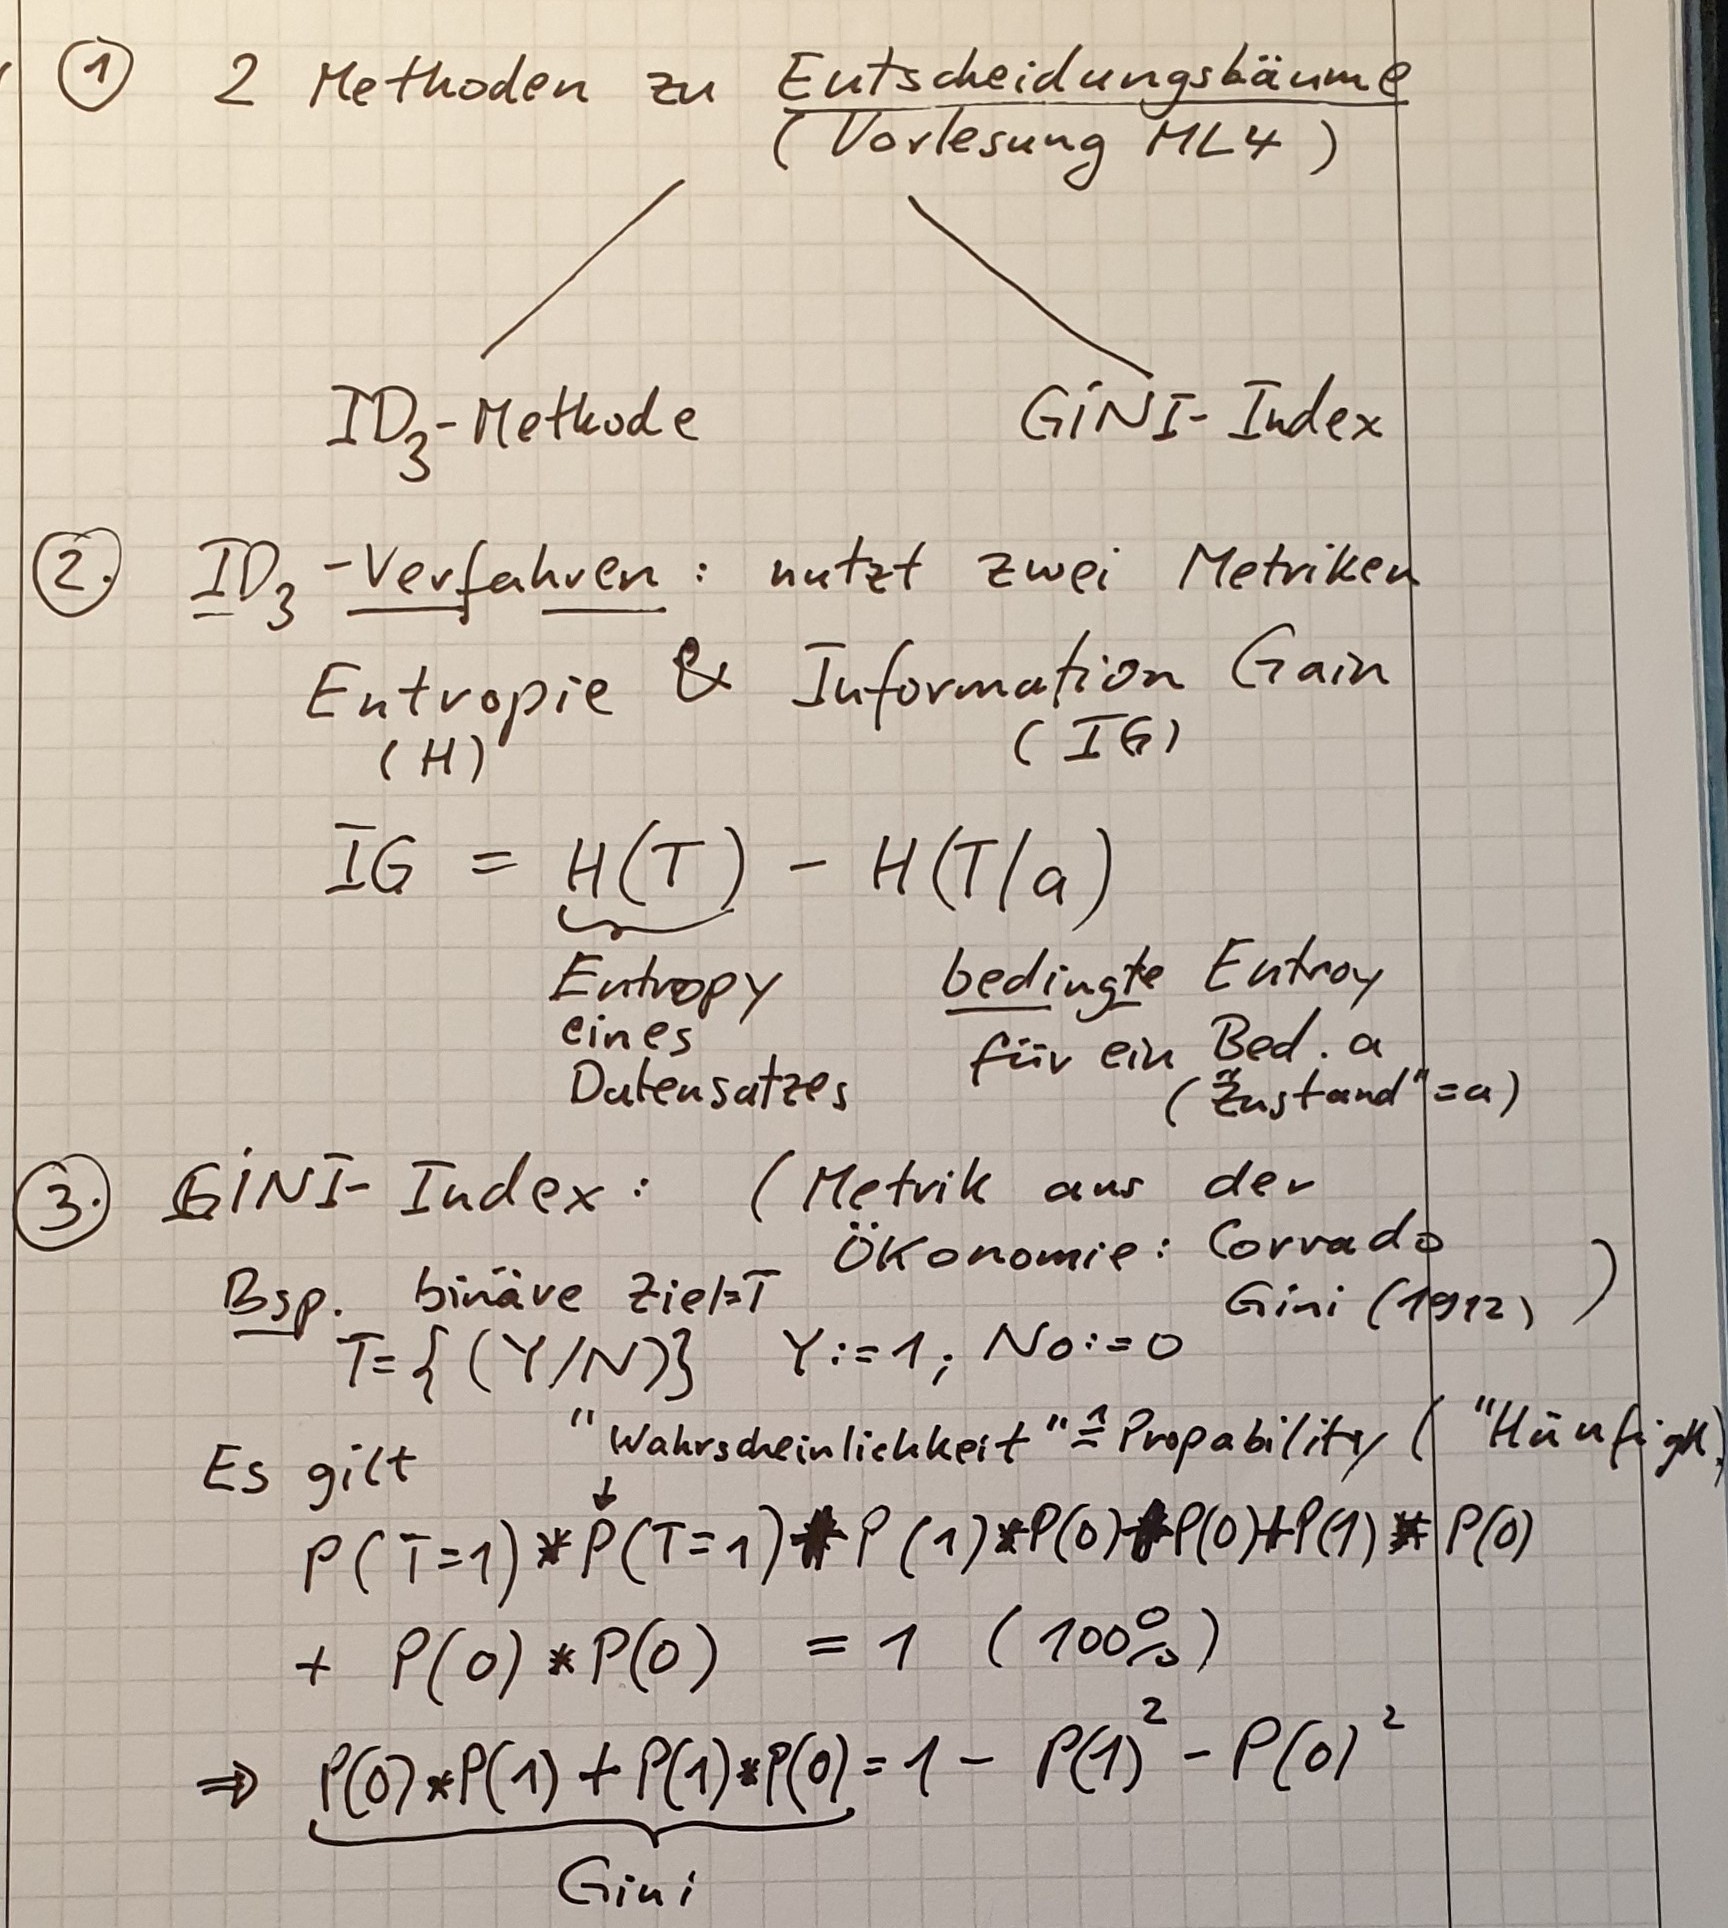 ① 2 Methoden zu Entscheidungsbäume
(Vorlesung ML4)
ID3-Methode GiNI-Index
2. ID3-Verfahren: nutzt zwei Metriken
Entropie & Information Gain
(H) (IG)
IG = H(T) - H(T/a)
Entropy bedingte Entroy
eines für ein Bed. a
Datensatzes ("Zustand"=a)
3. GiNI-Index: (Metrik aus der
Ökonomie: Corrado
Gini (1912))
Bsp. binäre Ziel=T
T={(Y/N)} Y:=1; No:=0
"Wahrscheinlichkeit" ≙ Propability ("Häufigk.
Es gilt ↓
P(T=1)*P(T=1) + P(1)*P(0) + P(0)+P(1) * P(0)
+ P(0)*P(0) = 1 (100%)
⇒ P(0)*P(1) + P(1)*P(0) = 1 - P(1)² - P(0)²
Gini